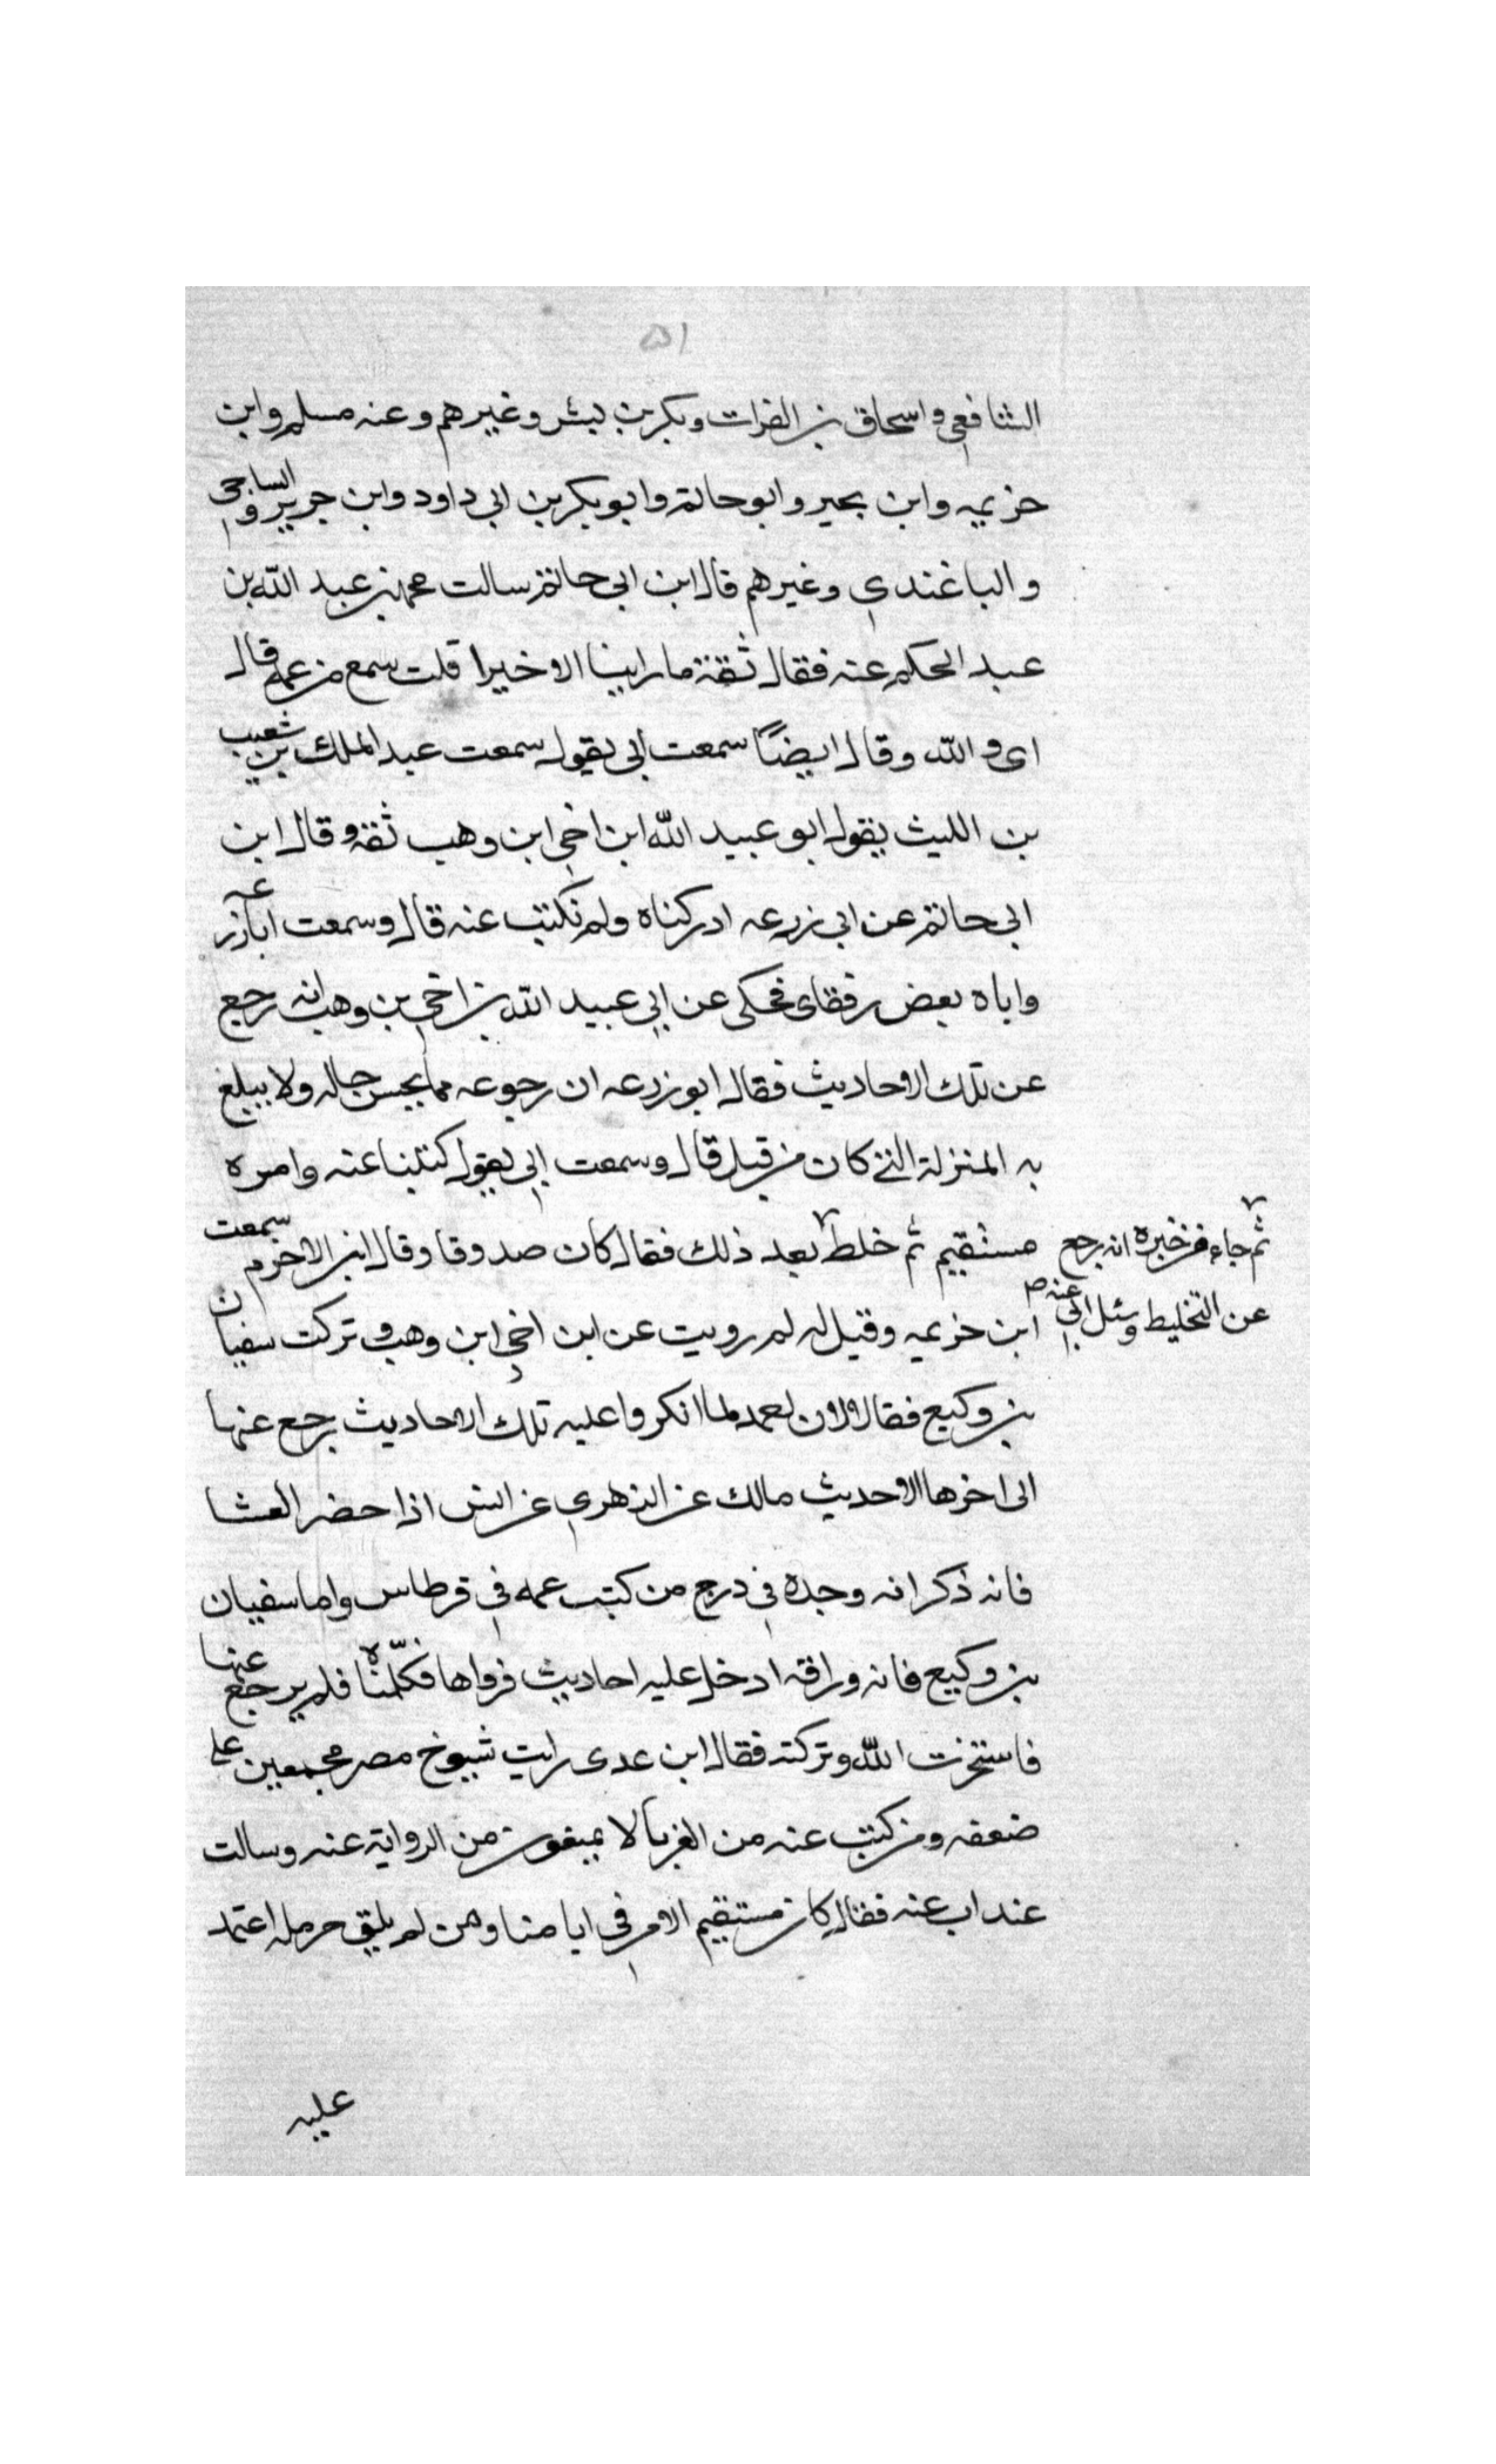 ٥١
الشافعي واسحاق بن الفرات وبكر بن بشر وغيرهم وعنه مسلم وابن
خزيمه وابن بجير وابو حاتم وابو بكر بن ابي داود وابن جرير والساجي
والباغندي وغيرهم قال ابن ابي حاتم سالت محمد بن عبد الله بن
عبد الحكم عنه فقال ثقة ما راينا الا خيرا قلت سمع من عمه قال
اى والله وقال ايضًا سمعت ابي يقول سمعت عبد الملك بن شعيب
بن الليث يقول ابو عبيد الله ابن اخي ابن وهب ثقه وقال ابن
ابي حاتم عن ابي زرعه ادركناه ولم نكتب عنه قال وسمعت ابا زرعه
واباه بعض رفقاى فحكى عن ابي عبيد الله بن اخي بن وهب انه رجع
عن تلك الاحاديث فقال ابو زرعه ان رجوعه مما يحسن حاله ولا يبلغ
به المنزلة التي كان من قبل قال وسمعت ابي يقول كتبنا عنه وامره
مستقيم ثم خلط بعد ذلك فقال كان صدوقا وقال ابن الاخرم سمعت
ثم جاء من خبره انه رجع
عن التخليط وسئل ابي عنه ص
ابن خزيمه وقيل له لم رويت عن ابن اخي ابن وهب وتركت سفيان
بن وكيع فقال لان احمد لما انكروا عليه تلك الاحاديث رجع عنها
الى اخرها الا حديث مالك عن الزهري عن انس اذا حضر العشا
فانه ذكر انه وجده في درج من كتب عمه في قرطاس واما سفيان
بن وكيع فانه وراقه ادخل عليه احاديث فرواها فكلّمناه فلم يرجع عنها
فاستخرت الله وتركته فقال ابن عدى رايت شيوخ مصر مجمعين على
ضعفه ومن كتب عنه من الغربا لا يمتنعون من الرواية عنه وسالت
عبدان عنه فقال كان مستقيم الامر في ايامنا ومن لم يلق حرمله اعتمد
عليه